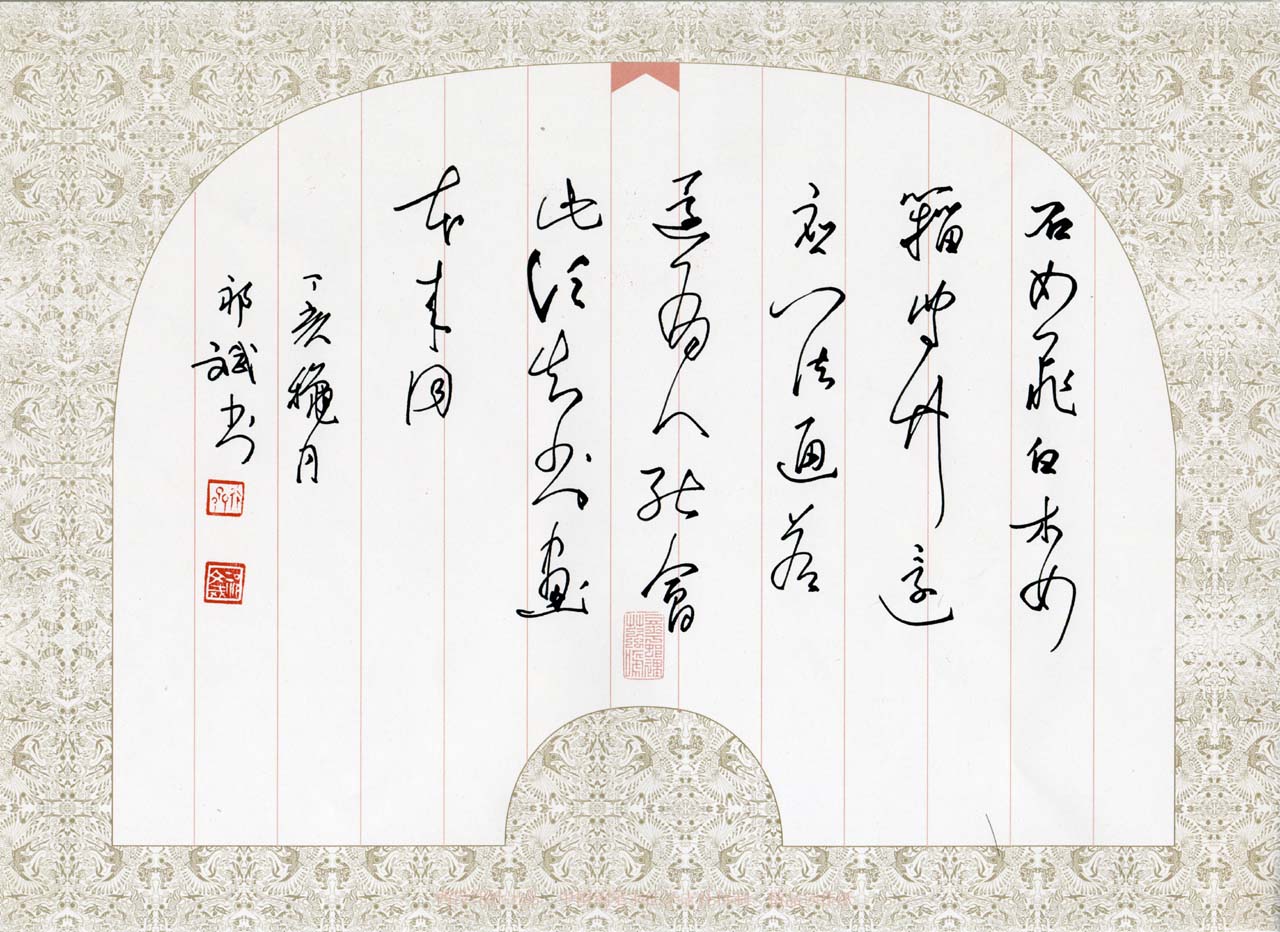 石如飛白木如
籀寫竹還
應八法通若
還有人能會
此須知書畫
本來同
丁亥穐月
祁斌書